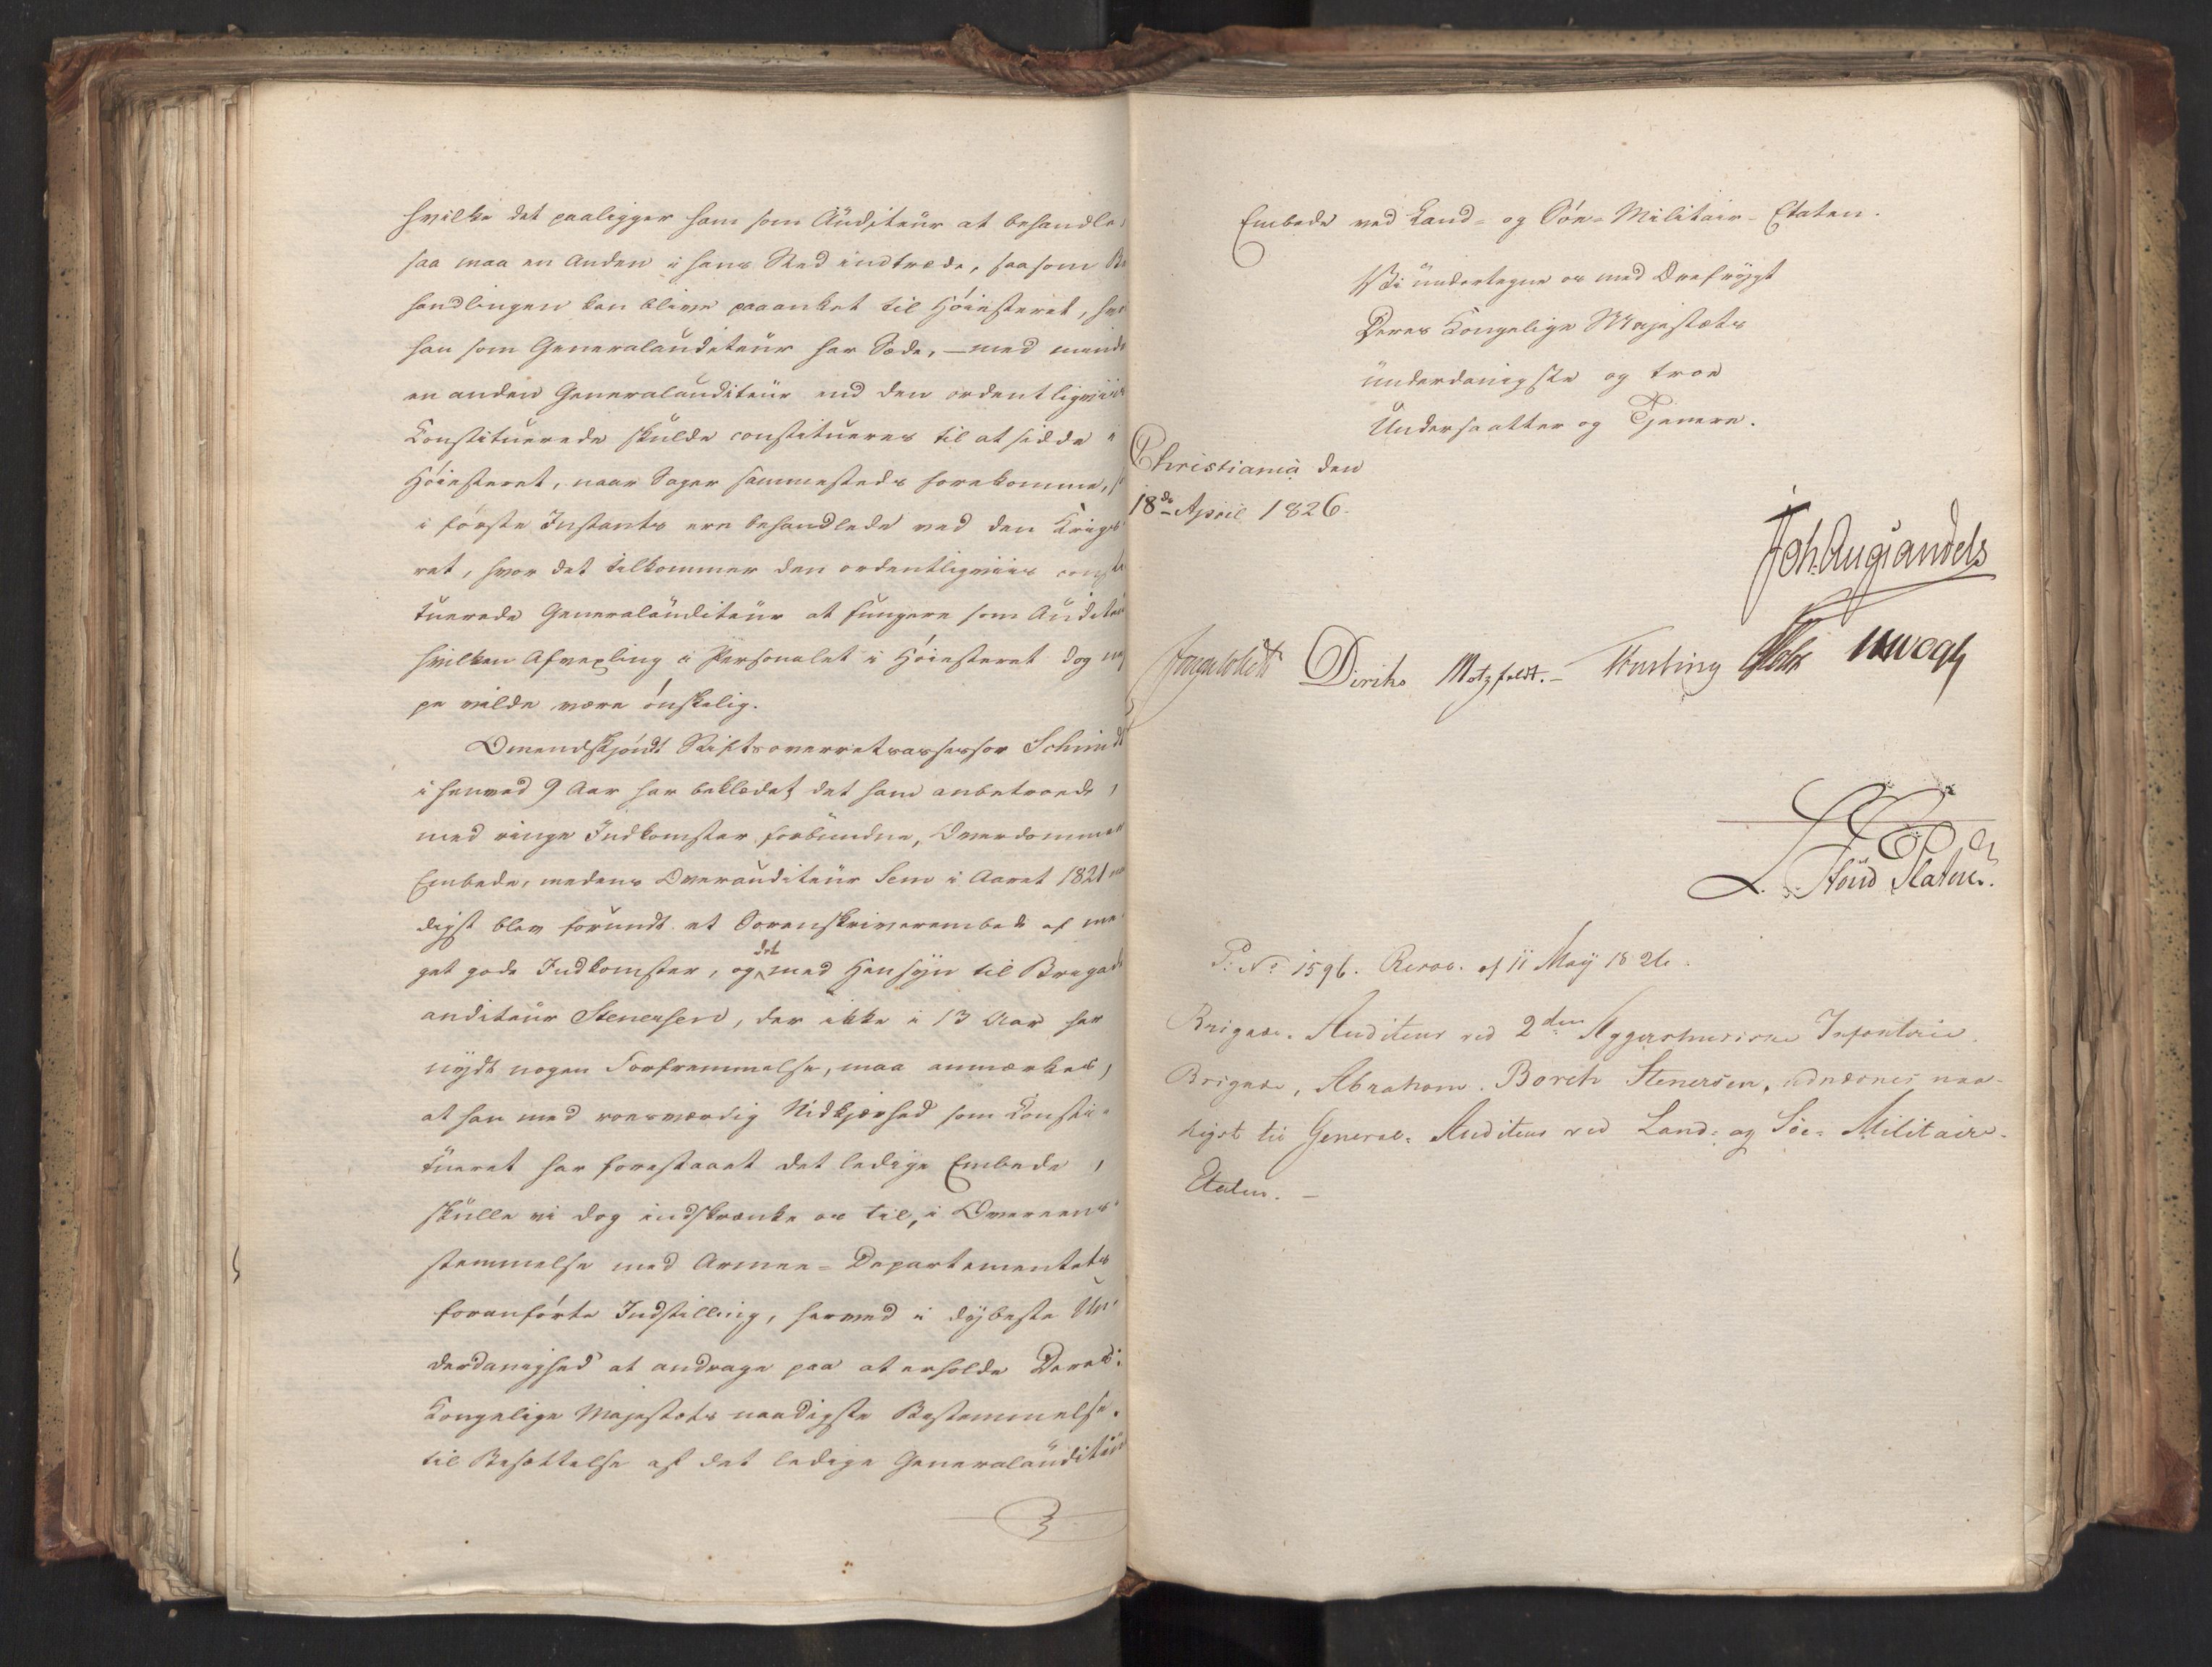 hvilke det paaligger ham som Auditeur at behandle,
saa maa en Anden i hans Sted indtræde, saasom Be
handlingen kan blive paaanket til Höiesteret, hvor
han som Generalauditeur har Sæde, – med mindre
en anden Generalauditeur end den ordentligviis
Constituerede skulde constitueres til at sidde i
Höiesteret, naar Sager sammesteds forekomme,
i förste Instants ere behandlede ved den Krigs
ret, hvor det tilkommer den ordentligviis consti
tuerede Generalauditeur at fungere som Auditeur
hvilken Afvexling i Personalet i Höiesteret dog
pe vilde være önskelig.
Omendskjöndt Stiftsoverretsassessor Schmidt
i henved 9 Aar har beklædet det ham anbetroede,
med ringe Indkomster forbundne, Overdommer
Embede, medens Overauditeur Sem i Aaret 1821 naa
digst blev forundt et Sorenskriverembede af me
get gode Indkomster, og det med Hensyn til Brigade
auditeur Stenersen, der ikke i 13 Aar har
nydt nogen Forfremmelse, maa anmærkes,
at han med roesværdig Nidkjærhed som Consti-
tueret har forestaaet det ledige Embede,
skulle vi dog indskrænke os til, i Overeens-
stemmelse med Armee-Departementets
foranförte Indstilling, herved i dybeste Un-
derdanighed at andrage paa at erholde Deres
Kongelige Majestæts naadigste Bestemmelse
til Besættelse af det ledige Generalauditeur
Embede ved Land- og Söe-Militair-Etaten.
Vi undertegne os med Ærefrygt
Deres Kongelige Majestæts
underdanigste og troe
Undersaatter og Tjenere.
Christiania den
18de April 1826.
Joh. Aug. Sandels
Diriks Motzfeldt. –
L. Höud Platou.
P: No 1596. Resol. af 11 May 1826.
Brigade-Auditeur ved 2den Aggershusiske Infanterie
Brigade, Abraham Borch Stenersen, udnævnes naa-
digst til General-Auditeur ved Land- og Söe-Militair-
Etaten. –